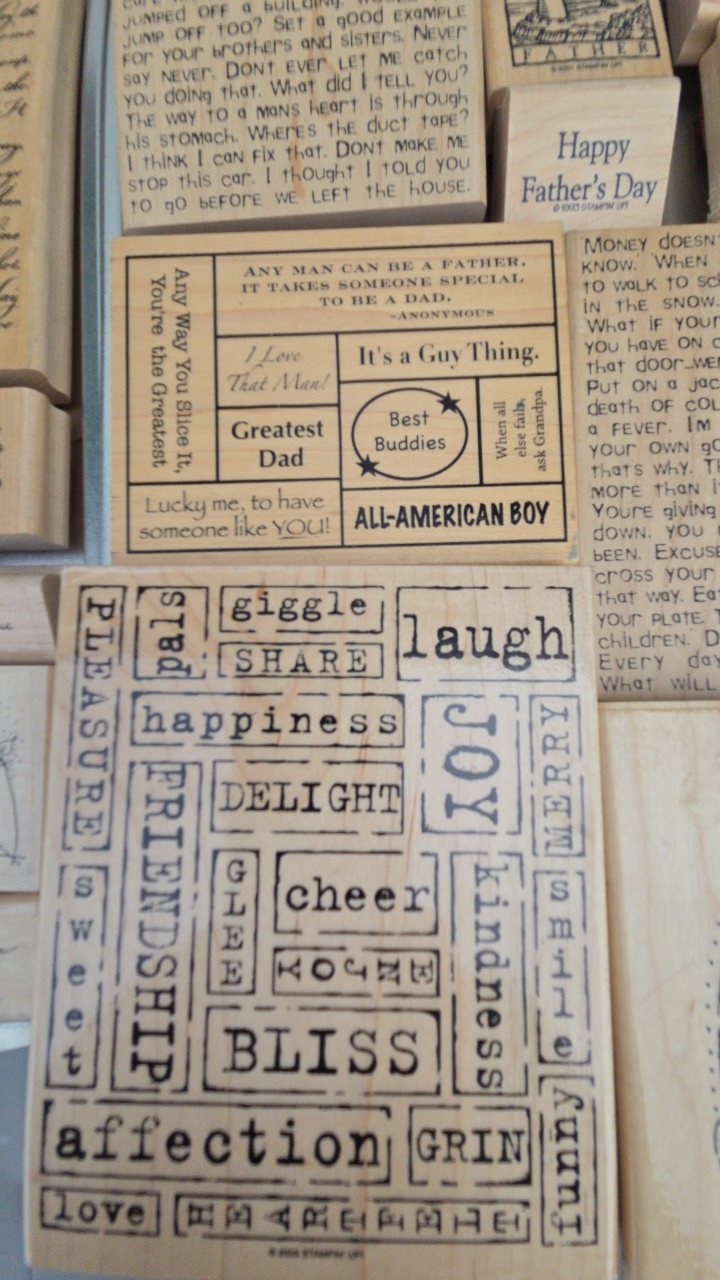 JUMPED OFF A BUILDING.
JUMP OFF TOO? SET A GOOD EXAMPLE
FOR YOUR BROTHERS AND SISTERS. NEVER
SAY NEVER. DONT EVER LET ME CATCH
YOU DOING THAT. WHAT DID I TELL YOU?
THE WAY TO A MANS HEART IS THROUGH
HIS STOMACH. WHERES THE DUCT TAPE?
I THINK I CAN FIX THAT. DONT MAKE ME
STOP THIS CAR. I THOUGHT I TOLD YOU
TO GO BEFORE WE LEFT THE HOUSE.
FATHER
Happy
Father's Day
©1993 STAMPIN' UP!
Any Way You Slice It,
You're the Greatest
ANY MAN CAN BE A FATHER.
IT TAKES SOMEONE SPECIAL
TO BE A DAD.
~ANONYMOUS
I Love
That Man!
It's a Guy Thing.
Greatest
Dad
Best
Buddies
When all
else fails,
ask Grandpa.
Lucky me, to have
someone like YOU!
ALL-AMERICAN BOY
MONEY DOESN'T
KNOW. WHEN
TO WALK TO
IN THE SNOW.
WHAT IF YOUR
YOU HAVE ON
THAT DOOR
PUT ON A
DEATH OF
A FEVER. IM
YOUR OWN
THATS WHY.
MORE THAN
YOURE GIVING
DOWN. YOU
BEEN.
CROSS YOUR
THAT WAY.
YOUR PLATE.
CHILDREN.
EVERY
WHAT WILL
PLEASURE
pals
giggle
SHARE
laugh
happiness
JOY
MERRY
FRIENDSHIP
DELIGHT
sweet
GLEE
cheer
kindness
smile
ENJOY
BLISS
affection
GRIN
funny
love
HEARTFELT
STAMPIN' UP!